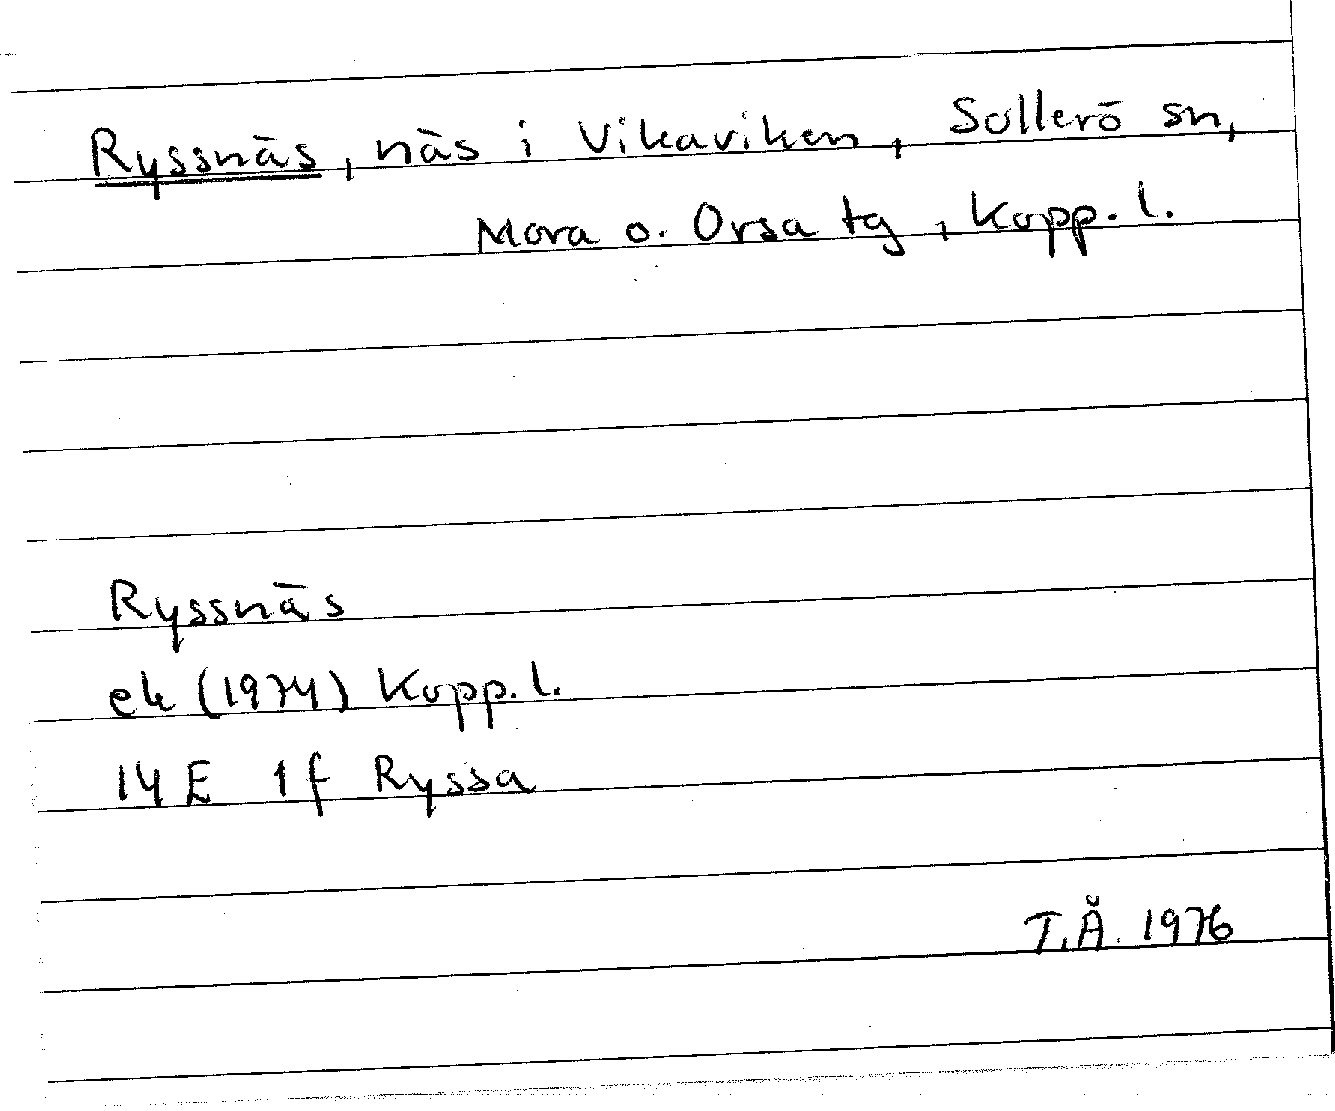 Ryssnäs, näs i Vikaviken, Sollerö sn,
Mora o. Orsa tg, Kopp. l.
Ryssnäs
ek (1974) Kopp. l.
14 E 1 f Ryssa
T.Å. 1976